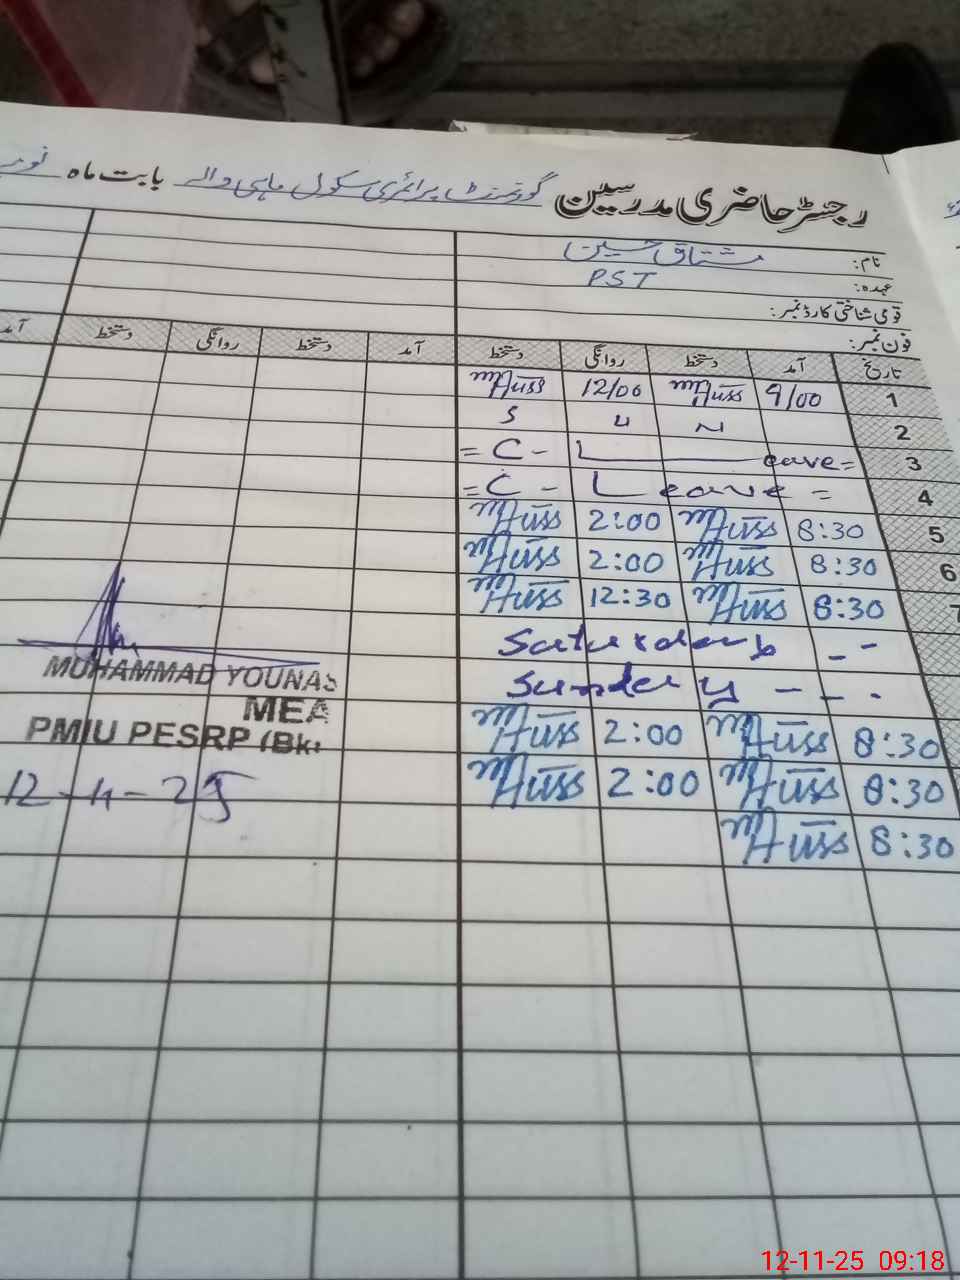 رجسٹر حاضری مدرسین گورنمنٹ پرائمری سکول ماہی والہ بابت ماہ
نام: مشتاق حسین
عہدہ: PST
قومی شناختی کارڈ نمبر:
فون نمبر:
تاریخ آمد دستخط روانگی دستخط آمد دستخط روانگی دستخط آمد
1 9/00 mHuss 12/00 mHuss
2 S U N
3 = C - Leave =
4 = C - Leave =
5 8:30 mHuss 2:00 mHuss
6 8:30 mHuss 2:00 mHuss
7 8:30 mHuss 12:30 mHuss
Saturday - -
Sunday - - -
8:30 mHuss 2:00 mHuss
8:30 mHuss 2:00 mHuss
8:30 mHuss
MUHAMMAD YOUNAS
MEA
PMIU PESRP (Bk
12-11-25
12-11-25 09:18